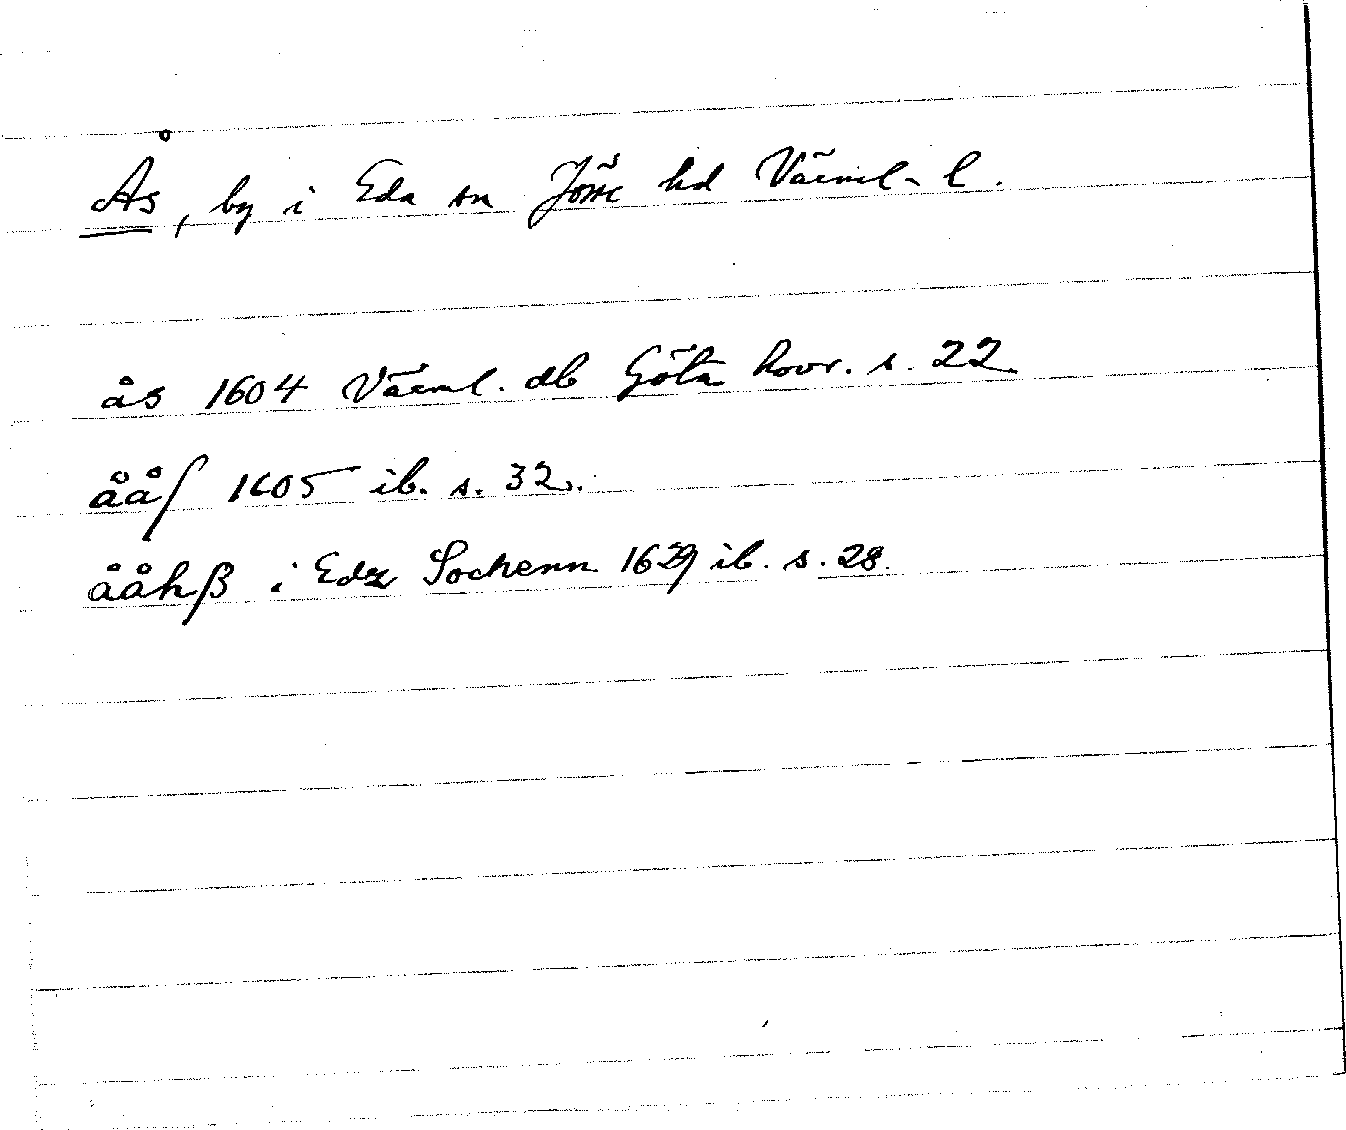 Ås, by i Eda sn Jösse hd Värml. l.
ås 1604 Värml. db Göta hovr. s. 22
ååſ 1605 ib. s. 32.
ååhß i Edz Sochenn 1629 ib. s. 28.